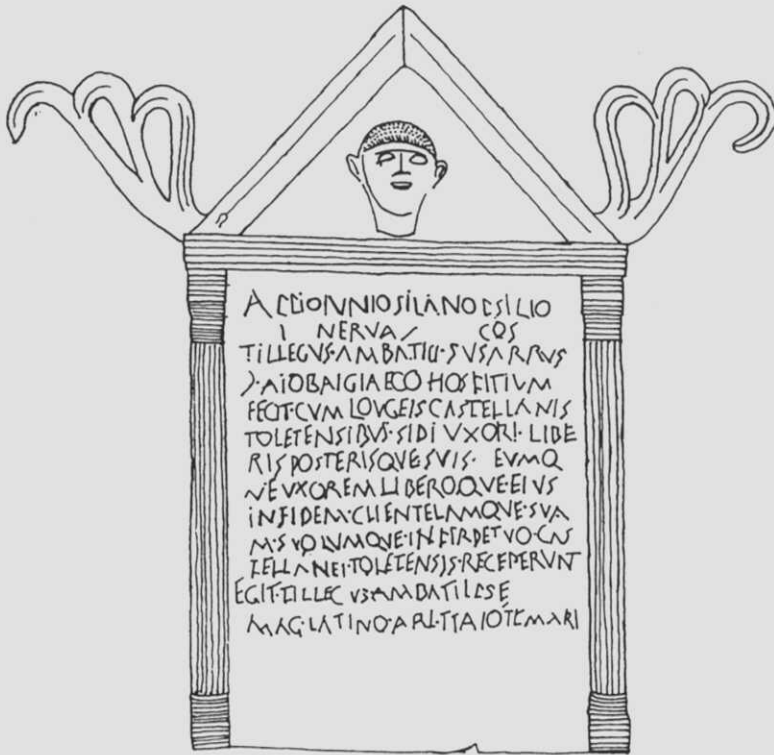 APPIO IVNIO SILANO P SILIO
NERVA COS
TILLEGVS·AMBATI·F·SVSARRVS
Ͻ·AIOBAIGIAECO HOSPITIVM
FECIT·CVM LOVGEIS CASTELLANIS
TOLETENSIBVS·SIBI VXORI·LIBE
RIS POSTERISQVE SVIS· EVMQ
VE VXOREM LIBEROSQVE EIVS
IN FIDEM·CLIENTELAMQVE·SVA
M·SVORVMQVE·IN PERPETVO·CAS
TELLANEI·TOLETENSIS·RECEPERVNT
EGIT·TILLEGVS AMBATI IPSE
MAG·LATINO·ARI·ET AIO TEMARI